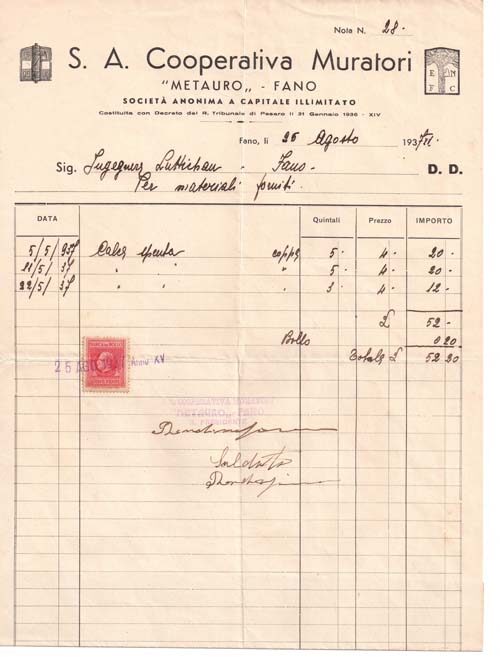 Nota N. 28.
S. A. Cooperativa Muratori
"METAURO„ - FANO
SOCIETÀ ANONIMA A CAPITALE ILLIMITATO
Costituita con Decreto del R. Tribunale di Pesaro li 31 Gennaio 1936 - XIV
E N
F C
Fano, li 25 Agosto 1937
Sig. Ingegnere Fano. D. D.
Per materiali forniti.
DATA Quintali Prezzo IMPORTO
5/5/937 Calce spenta 5 - 4 - 20 -
11/5/37 " " " 5 - 4 - 20 -
22/5/37 " " " 3 - 4 - 12 -
£ 52 -
Bollo 0 20
Totale £ 52 20
MARCA DA BOLLO
25 AGO Anno XV
COOPERATIVA MURATORI
"METAURO„ FANO
IL PRESIDENTE
Saldato